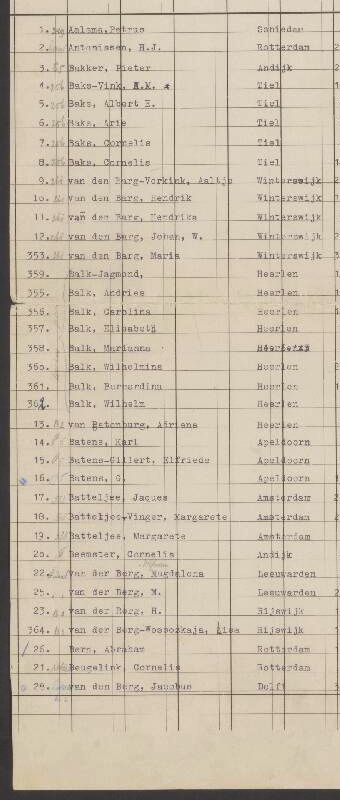 1. Aalsma, Petrus Sanieder
2. Antonissen, H.J. Rotterdam 2
3. Bakker, Pieter Andijk 2
4. Baks-Vink, H.M. Tiel 1
5. Baks, Albert E. Tiel
6. Baks, Arie Tiel
7. Baks, Cornelis Tiel
8. Baks, Cornelis Tiel 1
9. van den Barg-Vorkink, Aaltje Winterswijk 2
10. van den Barg, Hendrik Winterswijk 1
11. van den Barg, Hendrika Winterswijk
12. van den Barg, Johan, W. Winterswijk 2
353. van den Barg, Maria Winterswijk 3
359. Balk-Jagmond, Heerlen 1
355. Balk, Andries Heerlen 1
356. Balk, Carolina Heerlen 1
357. Balk, Elisabeth Heerlen
358. Balk, Marianna Heerlen
360. Balk, Wilhelmina Heerlen 2
361. Balk, Bernardina Heerlen 1
362. Balk, Wilhelm Heerlen
13. van Batenburg, Adriana Heerlen
14. Batens, Karl Apeldoorn
15. Batens-Gillert, Elfriede Apeldoorn
16. Batens, G. Apeldoorn 1
17. Batteljee, Jaques Amsterdam 2
18. Batteljee-Vinger, Margarete Amsterdam 2
19. Batteljee, Margarete Amsterdam
20. Beemster, Cornelis Andijk
22. van der Berg, Magdalena Leeuwarden
25. van der Berg, M. Leeuwarden 2
23. van der Berg, H. Rijswijk 1
364. van der Berg- Lisa Rijswijk 1
26. Berg, Abraham Rotterdam 1
21. Beugelink, Cornelis Rotterdam 1
29. van den Berg, Jacobus Delft 3